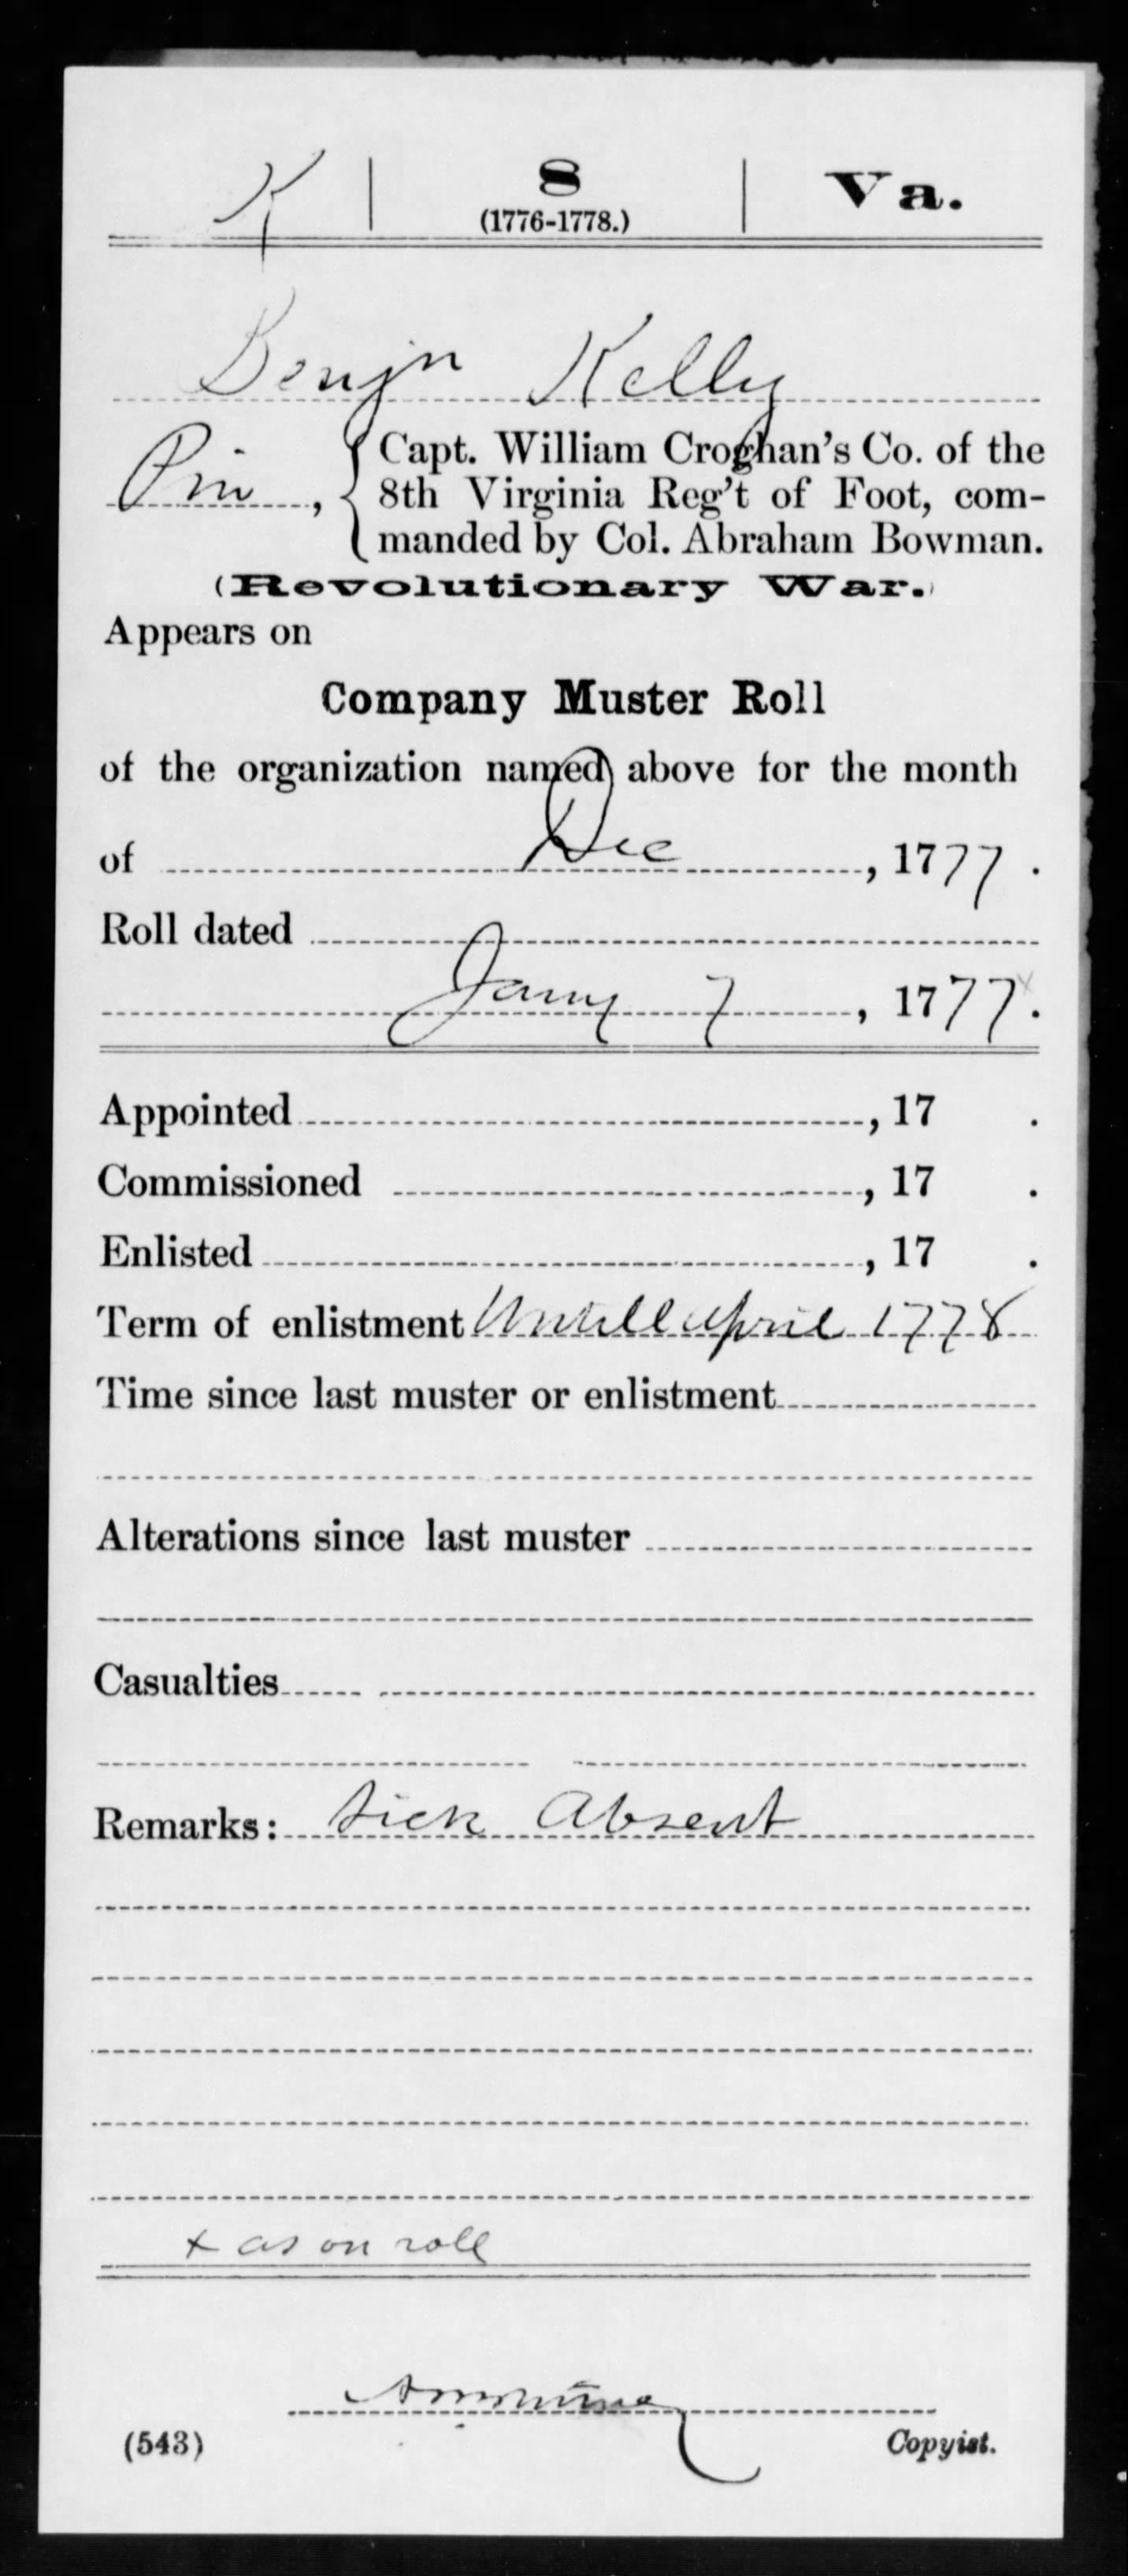 K 8 Va.
(1776-1778.)
Benjn Kelly
Priv, Capt. William Croghan's Co. of the
8th Virginia Reg't of Foot, com-
manded by Col. Abraham Bowman.
(Revolutionary War.)
Appears on
Company Muster Roll
of the organization named above for the month
of Dec, 1777.
Roll dated
Jany 7, 1777x.
Appointed, 17 .
Commissioned, 17 .
Enlisted, 17 .
Term of enlistment Untill April 1778
Time since last muster or enlistment
Alterations since last muster
Casualties
Remarks: Sick Absent
x as on roll
(543) Copyist.